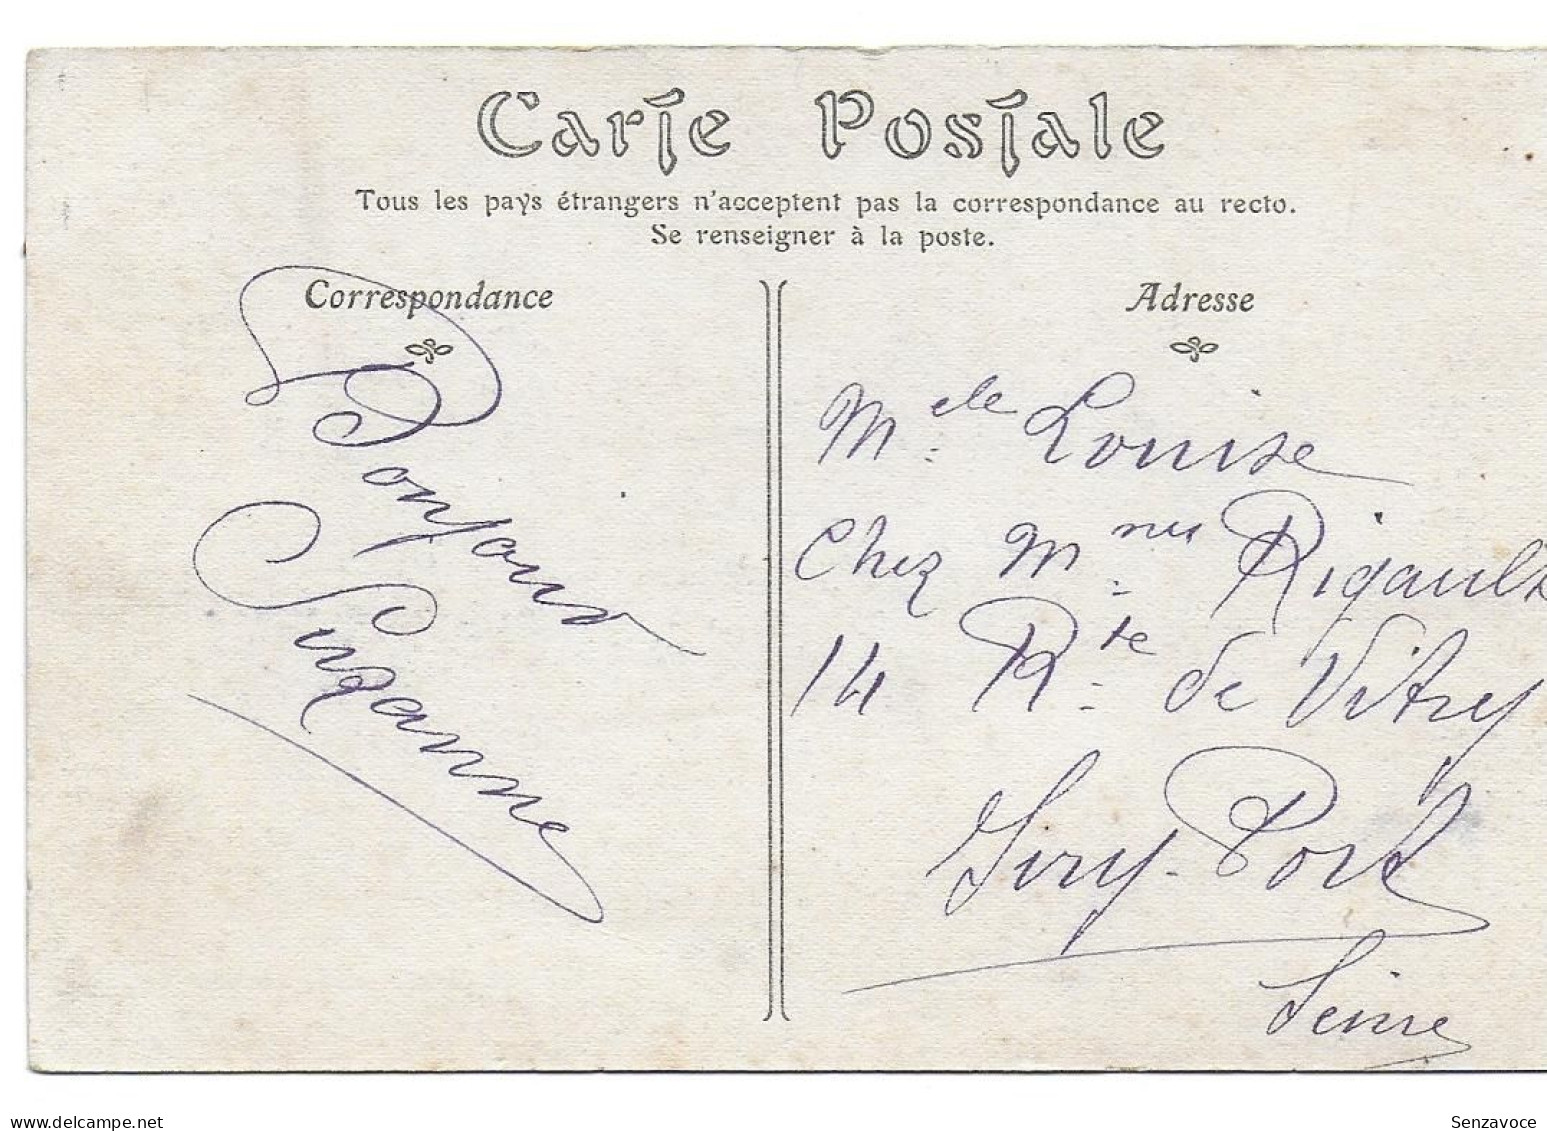 Carte Postale
Tous les pays étrangers n'acceptent pas la correspondance au recto.
Se renseigner à la poste.
Correspondance
Bonjour
Suzanne
Adresse
Mele Louise
Chez Mmes Rigault
14 Rte de Vitry
Ivry-Port
Seine
delcampe.net
Senzavoce